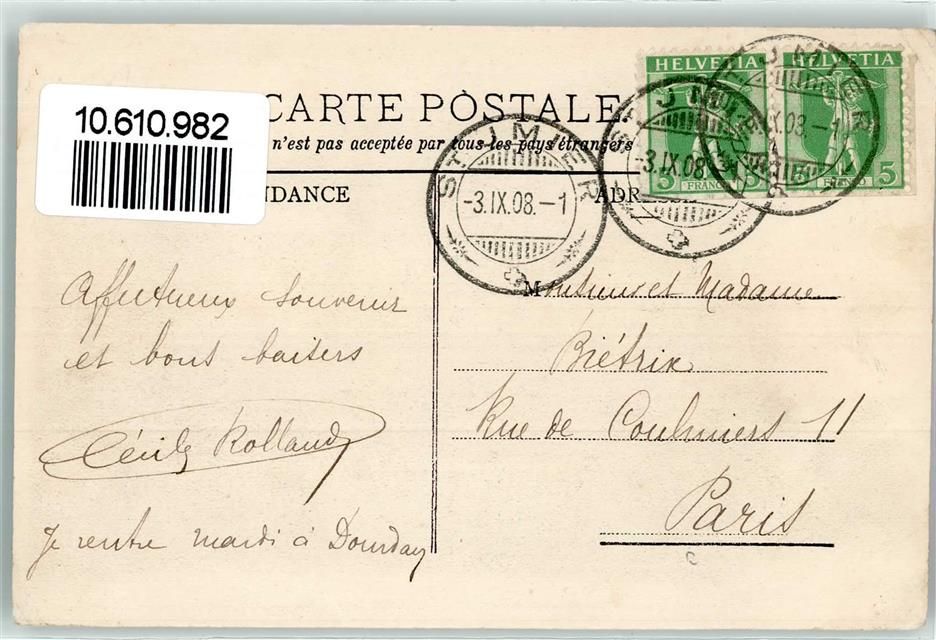 10.610.982
CARTE POSTALE
n'est pas acceptée par tous les pays étrangers
NDANCE
ADRESSE
HELVETIA
HELVETIA
5 FRANCO 5
5 FRANCO 5
ST. IMIER
-3.IX.08.-1
-3.IX.08.
IX.08.-1
Affectueux souvenir
et bons baisers
Cécile Rolland
Je rentre mardi à Dourdan
Monsieur et Madame
Biétrix
Rue de Coulmiers 11
Paris